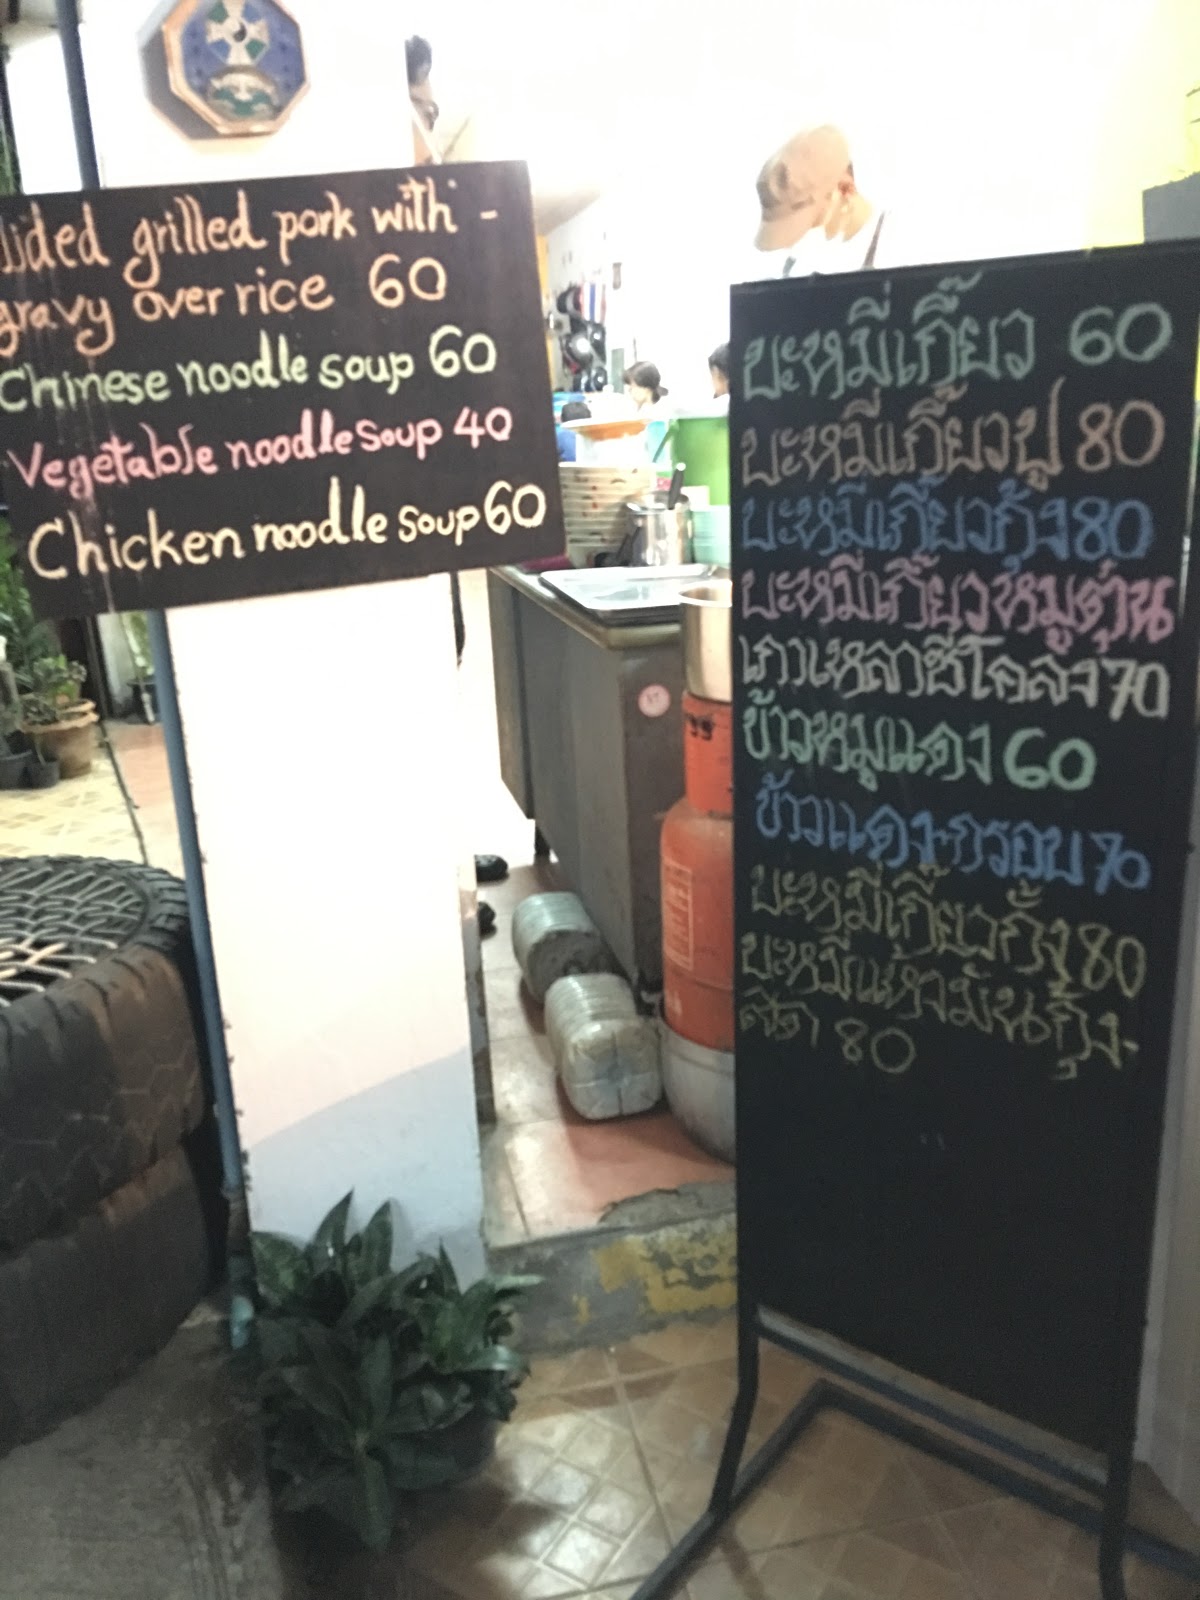 grilled pork with -
gravy over rice 60
Chinese noodle soup 60
Vegetable noodle soup 40
Chicken noodle soup 60
บะหมี่เกี๊ยว 60
บะหมี่เกี๊ยวปู 80
บะหมี่เกี๊ยวกุ้ง 80
บะหมี่เกี๊ยวหมูตุ๋น
เกาเหลาซี่โครง 70
ข้าวหมูแดง 60
ข้าวแดง+กรอบ 70
บะหมี่เกี๊ยวกุ้ง 80
บะหมี่แห้งมันกุ้ง-
80